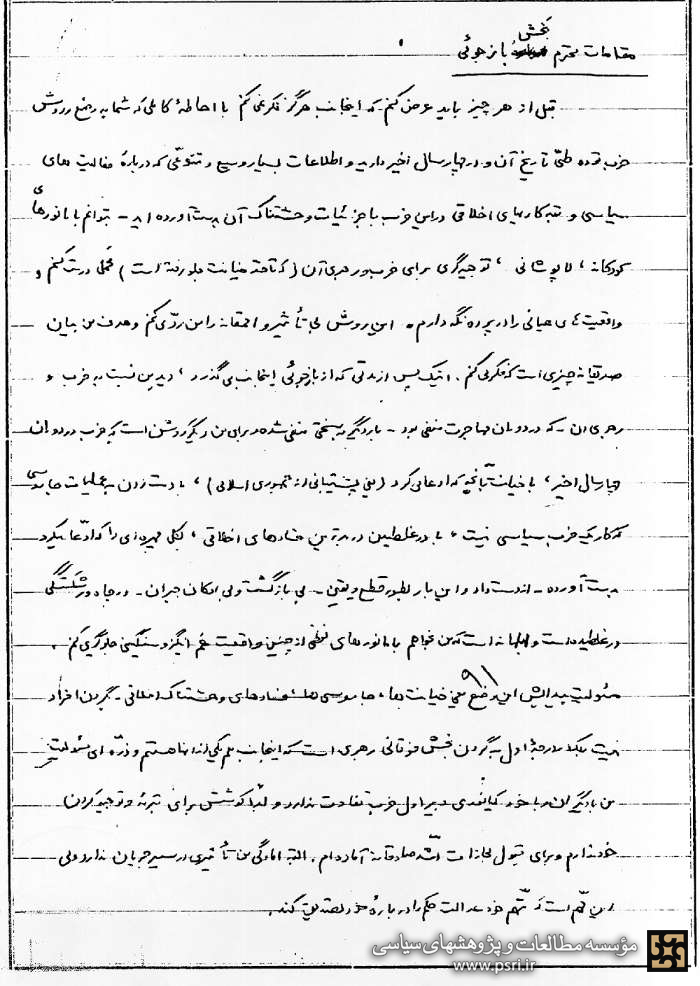 بخش
مقامات محترم بازجوئی
قبل از هر چیز باید عرض کنم که اینجانب هرگز فکر نمی کنم با احاطهٔ کاملی که شما به وضع و روش
حزب توده طی تاریخ آن و در چهار سال اخیر دارید و اطلاعات بسیار وسیع و متنوعی که دربارهٔ فعالیت های
سیاسی و تبه کاریهای اخلاقی در این حزب با جزئیات وحشتناک آن بدست آورده اید - بتوانم با مانورهای
کودکانه ، لاپوشانی ، توجیه گری برای حزب و رهبری آن ( که تا حد خیانت جلو رفته است ) محملی درست کنم و
واقعیت های عیانی را در پرده نگه دارم . این روش بی تأثیر و احمقانه را من رد می کنم و هدف من بیان
صدیقانه چیزی است که فکر می کنم . اینک پس از مدتی که از بازجوئی اینجانب می گذرد ، دید من نسبت به حزب و
رهبری آن - که در دوران مهاجرت منفی بود - بار دیگر به سختی منفی شده و برای من دیگر روشن است که حزب در دوران
چهار سال اخیر ، با خیانت به آنچه که ادعا می کرد ( یعنی پشتیبانی از جمهوری اسلامی ) ، با دست زدن به عملیات جاسوسی
که کار یک حزب سیاسی نیست ، با در غلطیدن در بدترین فسادهای اخلاقی ، بکلی چهره ای را که ادعا میکرد
بدست آورده - از دست داد و این بار بطور قطع و یقین - بی بازگشت و بی امکان جبران - در چاه ورشکستگی
در غلطیده است و ابلهانه است که من بخواهم با مانورهای لفظی از چنین واقعیت غم انگیز و سنگینی جلوگیری کنم .
مسئولیت پیدایش این وضع یعنی خیانت ها ، جاسوسی ها ، فسادهای وحشتناک اخلاقی - بگردن افراد
نیست بلکه در درجهٔ اول به گردن بخش فوقانی رهبری است که اینجانب هم یکی از آنها هستم و ذره ای مسئولیت
من با دیگران و با خود کیانوری دبیر اول حزب تفاوت ندارد و لذا کوششی برای تبرئه و توجیه گران
خود ندارم و برای قبول مجازات اشد صادقانه آماده ام . البته آمادگی من تأثیری در سیر جریان ندارد ولی
این مهم است که متهم خود عدالت حکم را دربارهٔ خود تصدیق کند .
مؤسسه مطالعات و پژوهشهای سیاسی
www.psri.ir